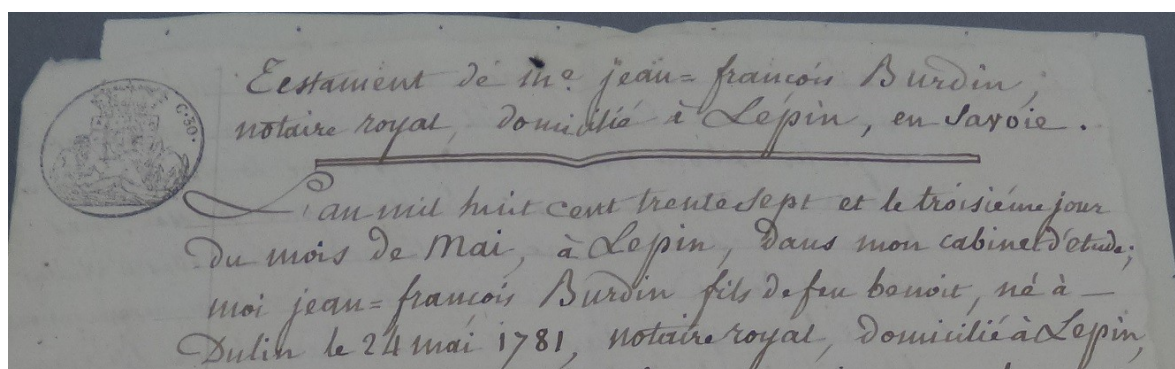 C. 30.
Testament de me. jean=françois Burdin,
notaire royal, domicilié à Lépin, en Savoie.
L'an mil huit cent trente sept et le troisiéme jour
Du mois de Mai, à Lepin, Dans mon cabinet d'étude;
moi jean=françois Burdin fils de feu benoit, né à —
Dulin le 24 mai 1781, notaire royal, domicilié à Lepin,